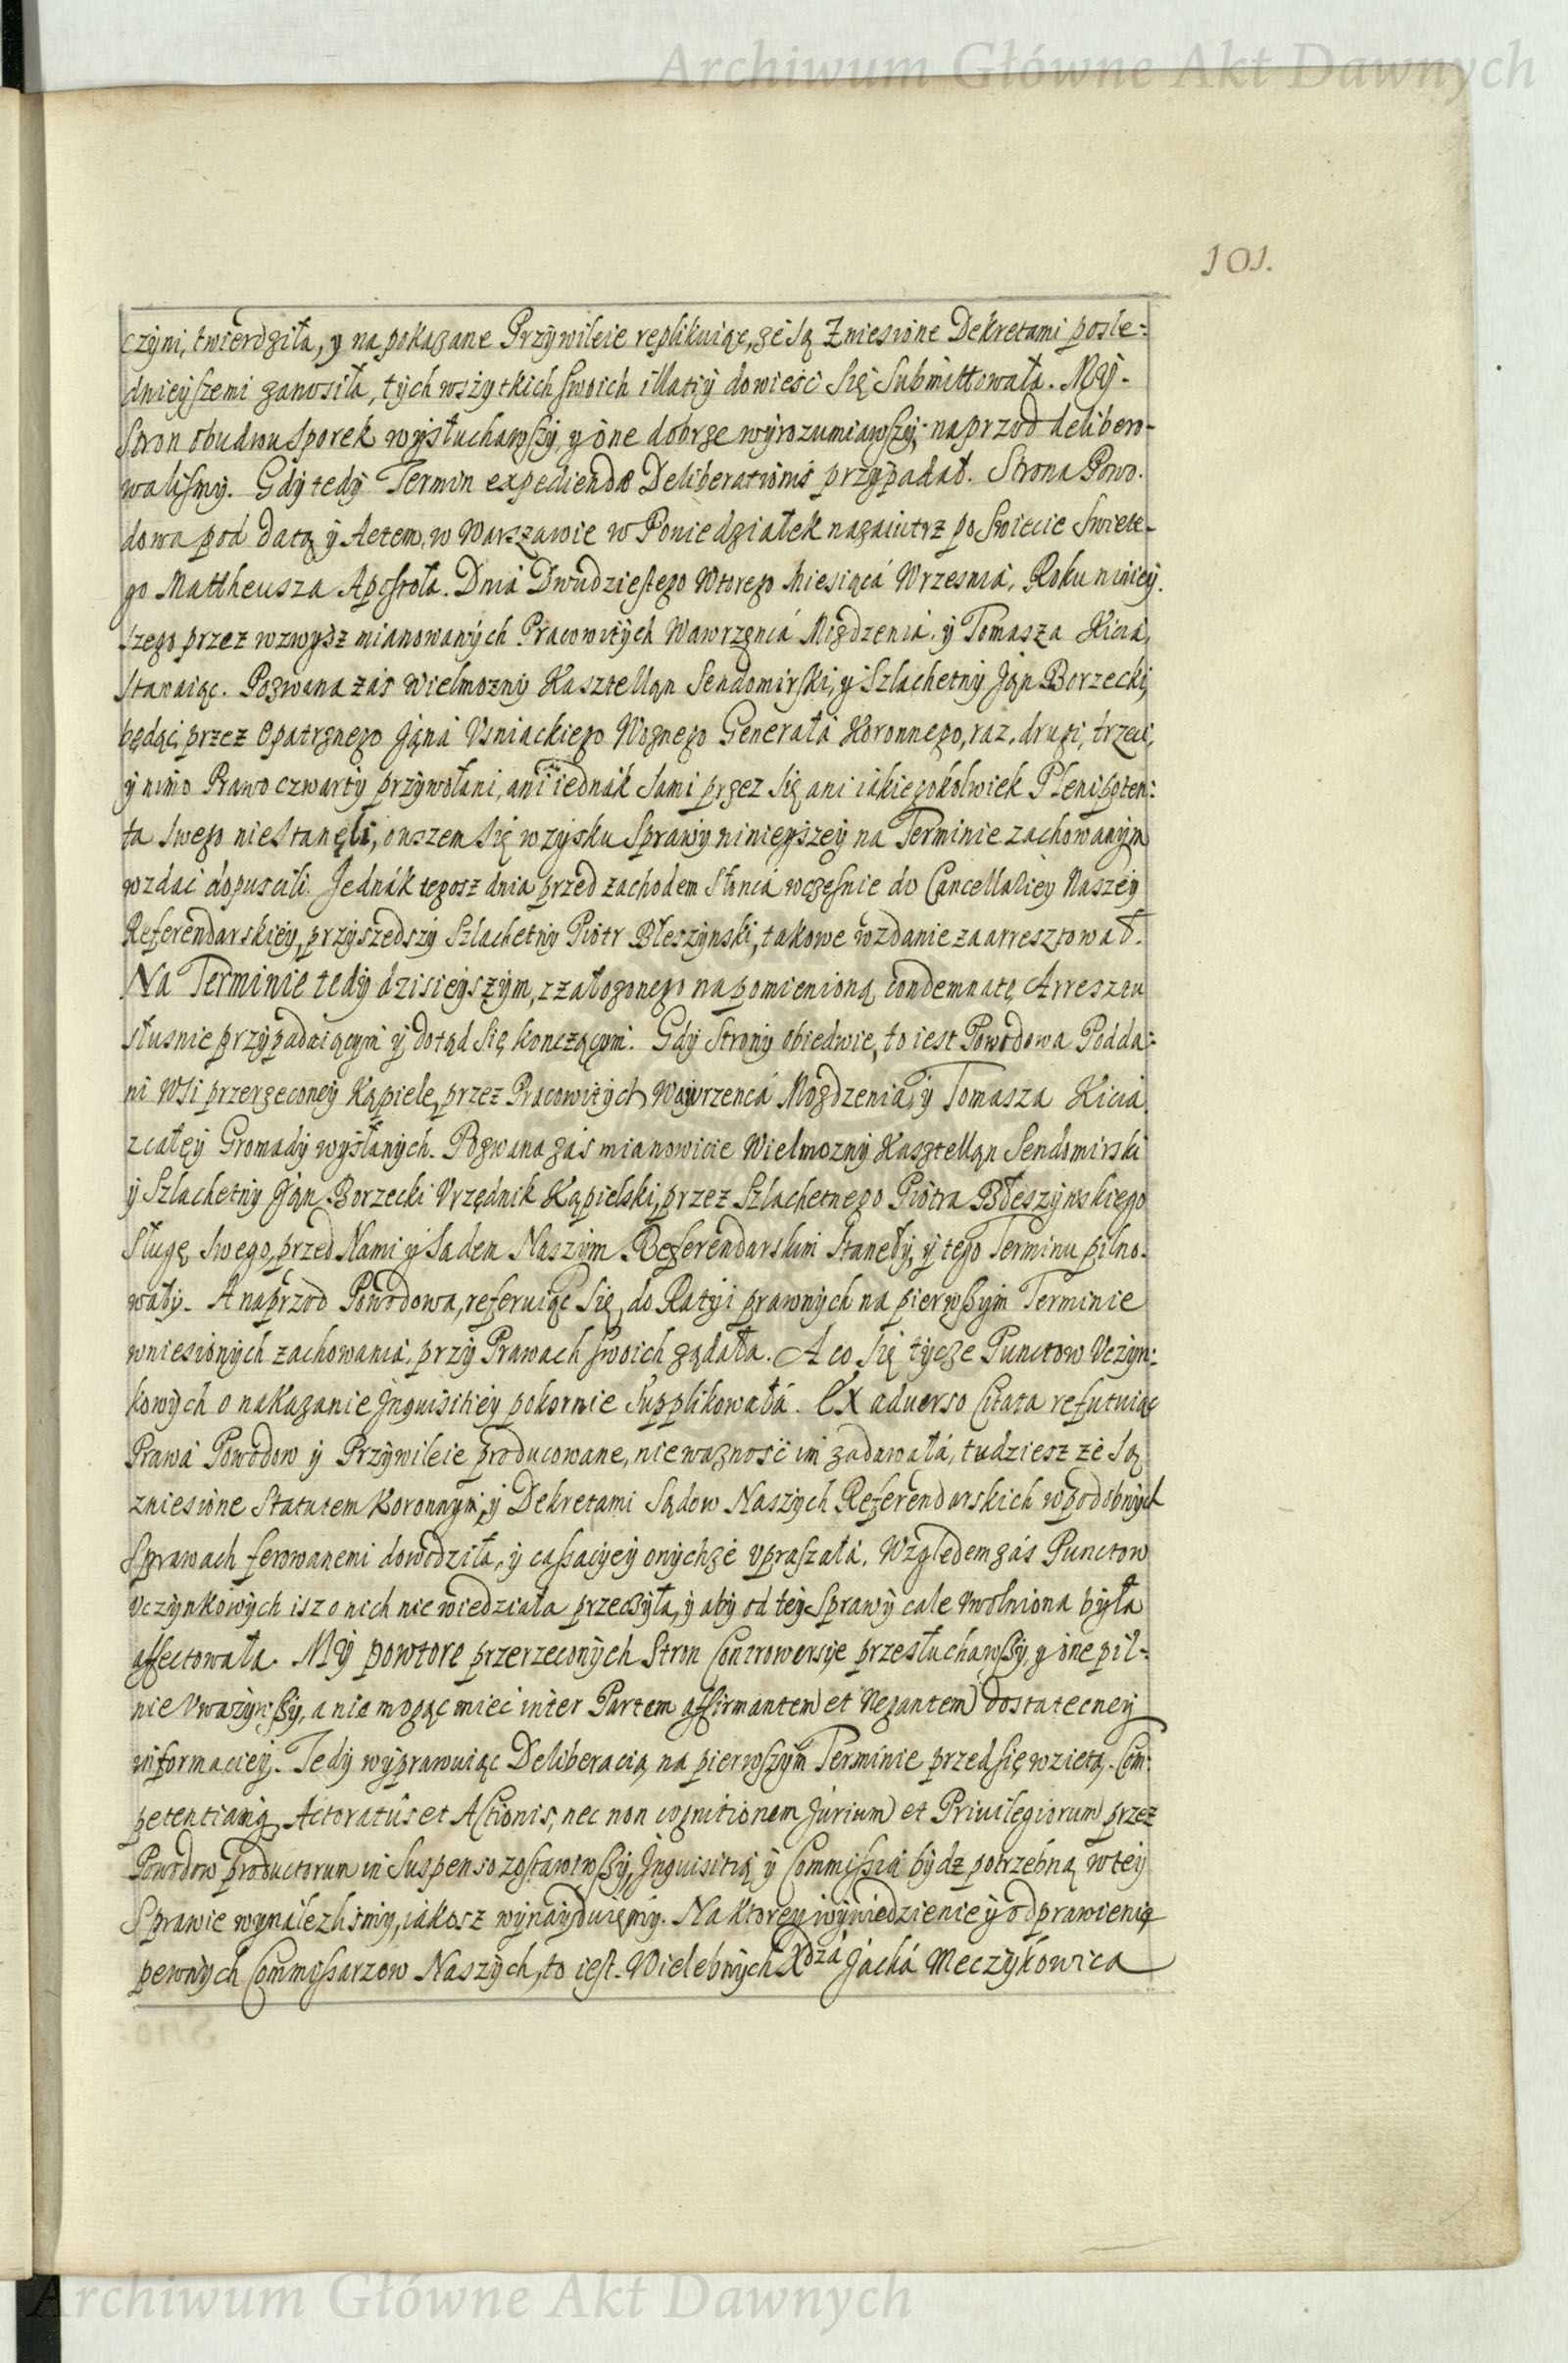 Archiwum Główne Akt Dawnych
101.
czyni, twierdziła, y na pokazane Przywileie replikuiąc, że są Zniesione Dekretami posle-
dnieyszemi zanosiła, tych wszytkich swoich illatiy dowieść się submittowała. My.
Stron obudwu sporek wysłuchawszy, y one dobrze wyrozumiawszy, naprzod delibero-
walismy. Gdy tedy Termin expediendæ Deliberationis przypadał. Strona Powo.
dowa pod datą y Actem, w Warszawie w Poniedziałek nazaiutrz po Swiecie Swiete-
go Mattheusza Apostoła. Dnia Dwudziestego Wtorego Miesiąca Wrzesnia, Roku niniey.
szego przez wzwysz mianowanych Pracowitych Wawrzenca Mozdzenia, y Tomasza Kicia,
stawaiąc. Pozwana zaś Wielmozny Kasztellan Sendomirski, y Szlachetny Jan Borzecki,
będąc, przez Opatrznego Jana Usniackiego Woznego Generała Koronnego, raz, drugi, trzeci,
y mimo Prawo czwarty przywołani, ani iednak sami przez się ani iakiegokolwiek Plenipoten:
ta swego nie stanęli, owszem się w zysku Sprawy ninieyszey na Terminie zachowanym
wzdać dopuscili. Jednak tegosz dnia przed zachodem słonca wczesnie do Cancellariey Naszey
Referendarskiey, przyszedszy Szlachetny Piotr Błeszynski, takowe wzdanie zaarresztował.
Na Terminie tedy dzisieyszym, z załozonego na pomienioną condemnatę Arresztu
słusnie przypadaiącym y dotąd się konczącym. Gdy Strony obiedwie, to iest Powodowa Podda:
ni Wsi przerzeconey Kąpiele, przez Pracowitych Wawrzenca Mozdzenia, y Tomasza Kicia.
z całey Gromady wysłanych. Pozwana zaś mianowicie Wielmozny Kasztellan Sendomirski
y Szlachetny Jan Borzecki Urzędnik Kąpielski, przez Szlachetnego Piotra Błeszynskiego
Sługę swego, przed Nami y Sadem Naszym Referendarskim stanęły, y tego Terminu pilno.
wały. A naprzod Powodowa, referuiąc się, do Ratyi prawnych na pierwszym Terminie
wniesionych zachowania, przy Prawach swoich ządała. A co się tycze Punctow Uczyn:
kowych o nakazanie Inquisitiey pokornie supplikowała. Ex aduerso Citata refutuiąc
Prawa Powodow y Przywileie producowane, niewaznosć im zadawała, tudziesz że są
zniesione Statutem Koronnym, y Dekretami Sądow Naszych Referendarskich w podobnych
Sprawach ferowanemi dowodziła, y cassaciyey onychże upraszała, Względem zaś Punctow
Uczynkowych isz o nich nie wiedziała przeczyła, y aby od tey Sprawy cale uwolniona była
affectowała. My powtore przerzeconych Stron Controwersye przesłuchawszy, y one pil-
nie uwazywszy, a nie mogąc mieć inter Partem affirmantem et Negantem dostateczney
informaciey. Tedy wyprawuiąc Deliberacią, na pierwszym Terminie przedsię wzietą. Com:
petentiamq Actoratus et Actionis, nec non cognitionem Jurium et Priuilegiorum przez
Powodow productorum in suspenso zostawiwszy, Inquisitią y Commissią bydz potrzebną w tey
Sprawie wynalezlismy, iakosz wynayduięmy. Na ktorey wywiedzienie y odprawienie
pewnych Commissarzow Naszych, to iest. Wielebnych Xdza Jacka Meczykowica
Archiwum Główne Akt Dawnych